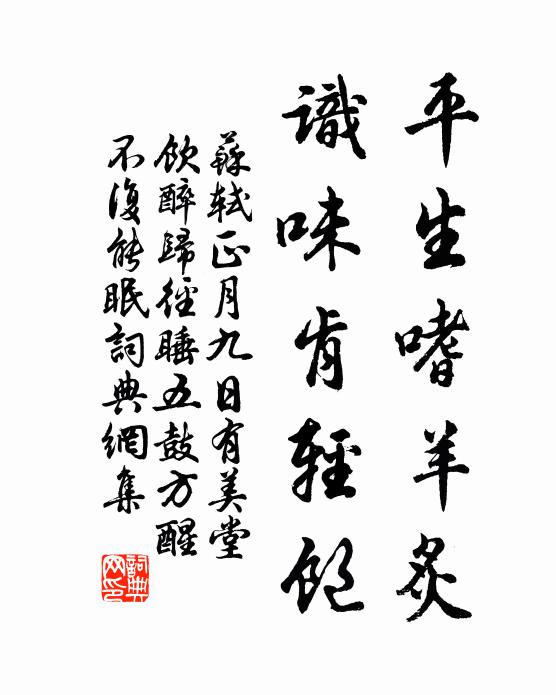 平生嗜羊炙
識味肯輕飽
蘇軾正月九日有美堂
飲醉歸徑睡五鼓方醒
不復能眠詞典網集
詞典
网印